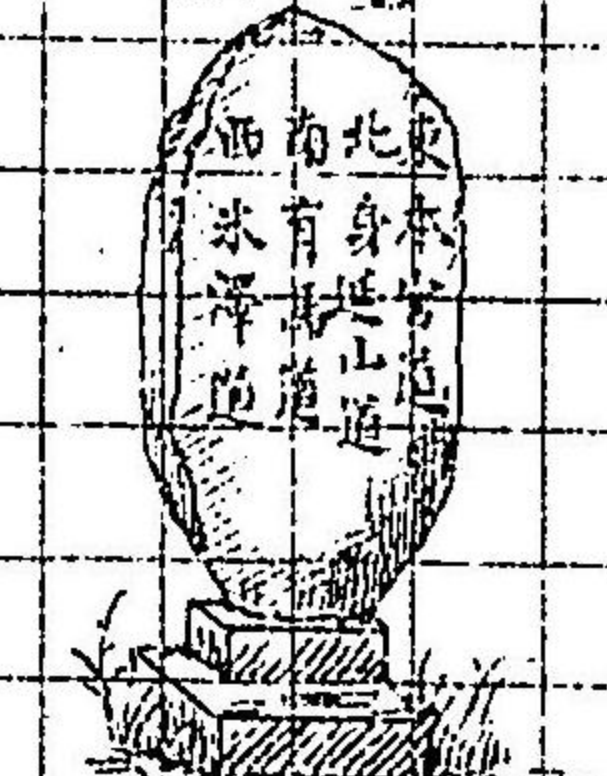 東本宮道
北身延山道
南有馬道
西米澤道